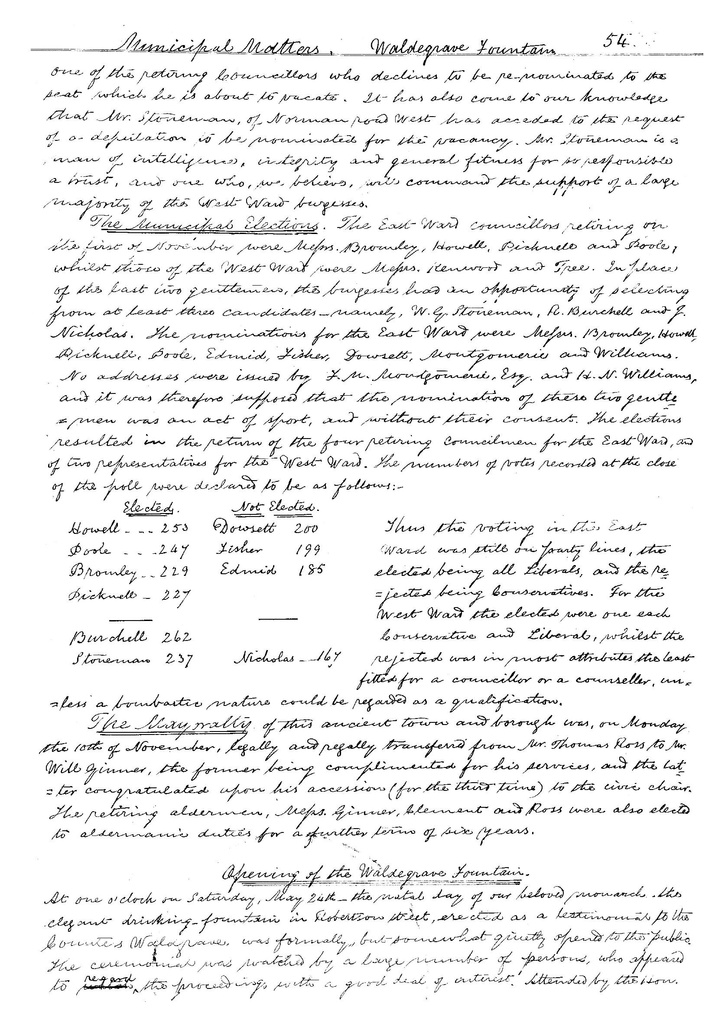 Municipal Matters. Waldegrave Fountain 54
one of the retiring Councillors who declines to be re-nominated to the
seat which he is about to vacate. It has also come to our knowledge
that Mr. Stoneman, of Norman road West has acceded to the request
of a deputation to be nominated for the vacancy. Mr. Stoneman is a
man of intelligence, integrity and general fitness for so responsible
a trust, and one who, we believe, will command the support of a large
majority of the West Ward burgesses.
The Municipal Elections. The East Ward councillors retiring on
the first of November were Messrs. Bromley, Howell, Picknell and Poole,
whilst those of the West Ward were Messrs. Kenwood and Tree. In place
of the last two gentlemen, the burgesses had an opportunity of selecting
from at least three candidates - namely, W. G. Stoneman, R. Burchell and J.
Nicholas. The nominations for the East Ward were Messrs. Bromley, Howell,
Picknell, Poole, Edmid, Fisher, Dowsett, Montgomerie and Williams.
No addresses were issued by F. M. Montgomerie, Esq. and H. N. Williams,
and it was therefore supposed that the nomination of these two gentle=
=men was an act of sport, and without their consent. The elections
resulted in the return of the four retiring councilmen for the East Ward, and
of two representatives for the West Ward. The numbers of votes recorded at the close
of the poll were declared to be as follows:-
Elected. Not Elected.
Howell --- 253 Dowsett 200
Poole --- 247 Fisher 199
Bromley -- 229 Edmid 185
Picknell - 227
Burchell 262
Stoneman 237 Nicholas -- 167
Thus the voting in the East
Ward was still on party lines, the
elected being all Liberals, and the re=
=jected being Conservatives. For the
West Ward the elected were one each
Conservative and Liberal, whilst the
rejected was in most attributes the least
fitted for a councillor or a counseller, un=
=less a bombastic nature could be regarded as a qualification.
The Mayoralty of this ancient town and borough was, on Monday
the 10th of November, legally and regally transferred from Mr. Thomas Ross to Mr.
Will Ginner, the former being complimented for his services, and the lat=
=ter congratulated upon his accession (for the third time) to the civic chair.
The retiring aldermen, Messrs. Ginner, Clement and Ross were also elected
to aldermanic duties for a further term of six years.
Opening of the Waldegrave Fountain.
At one o'clock on Saturday, May 24th - the natal day of our beloved monarch - the
elegant drinking-fountain in Robertson street, erected as a testimonial to the
Countess Waldegrave was formally, but somewhat quietly opend to the public
The ceremonial was watched by a large number of persons, who appeared
to regard the proceedings with a good deal of interest. Attended by the Hon.